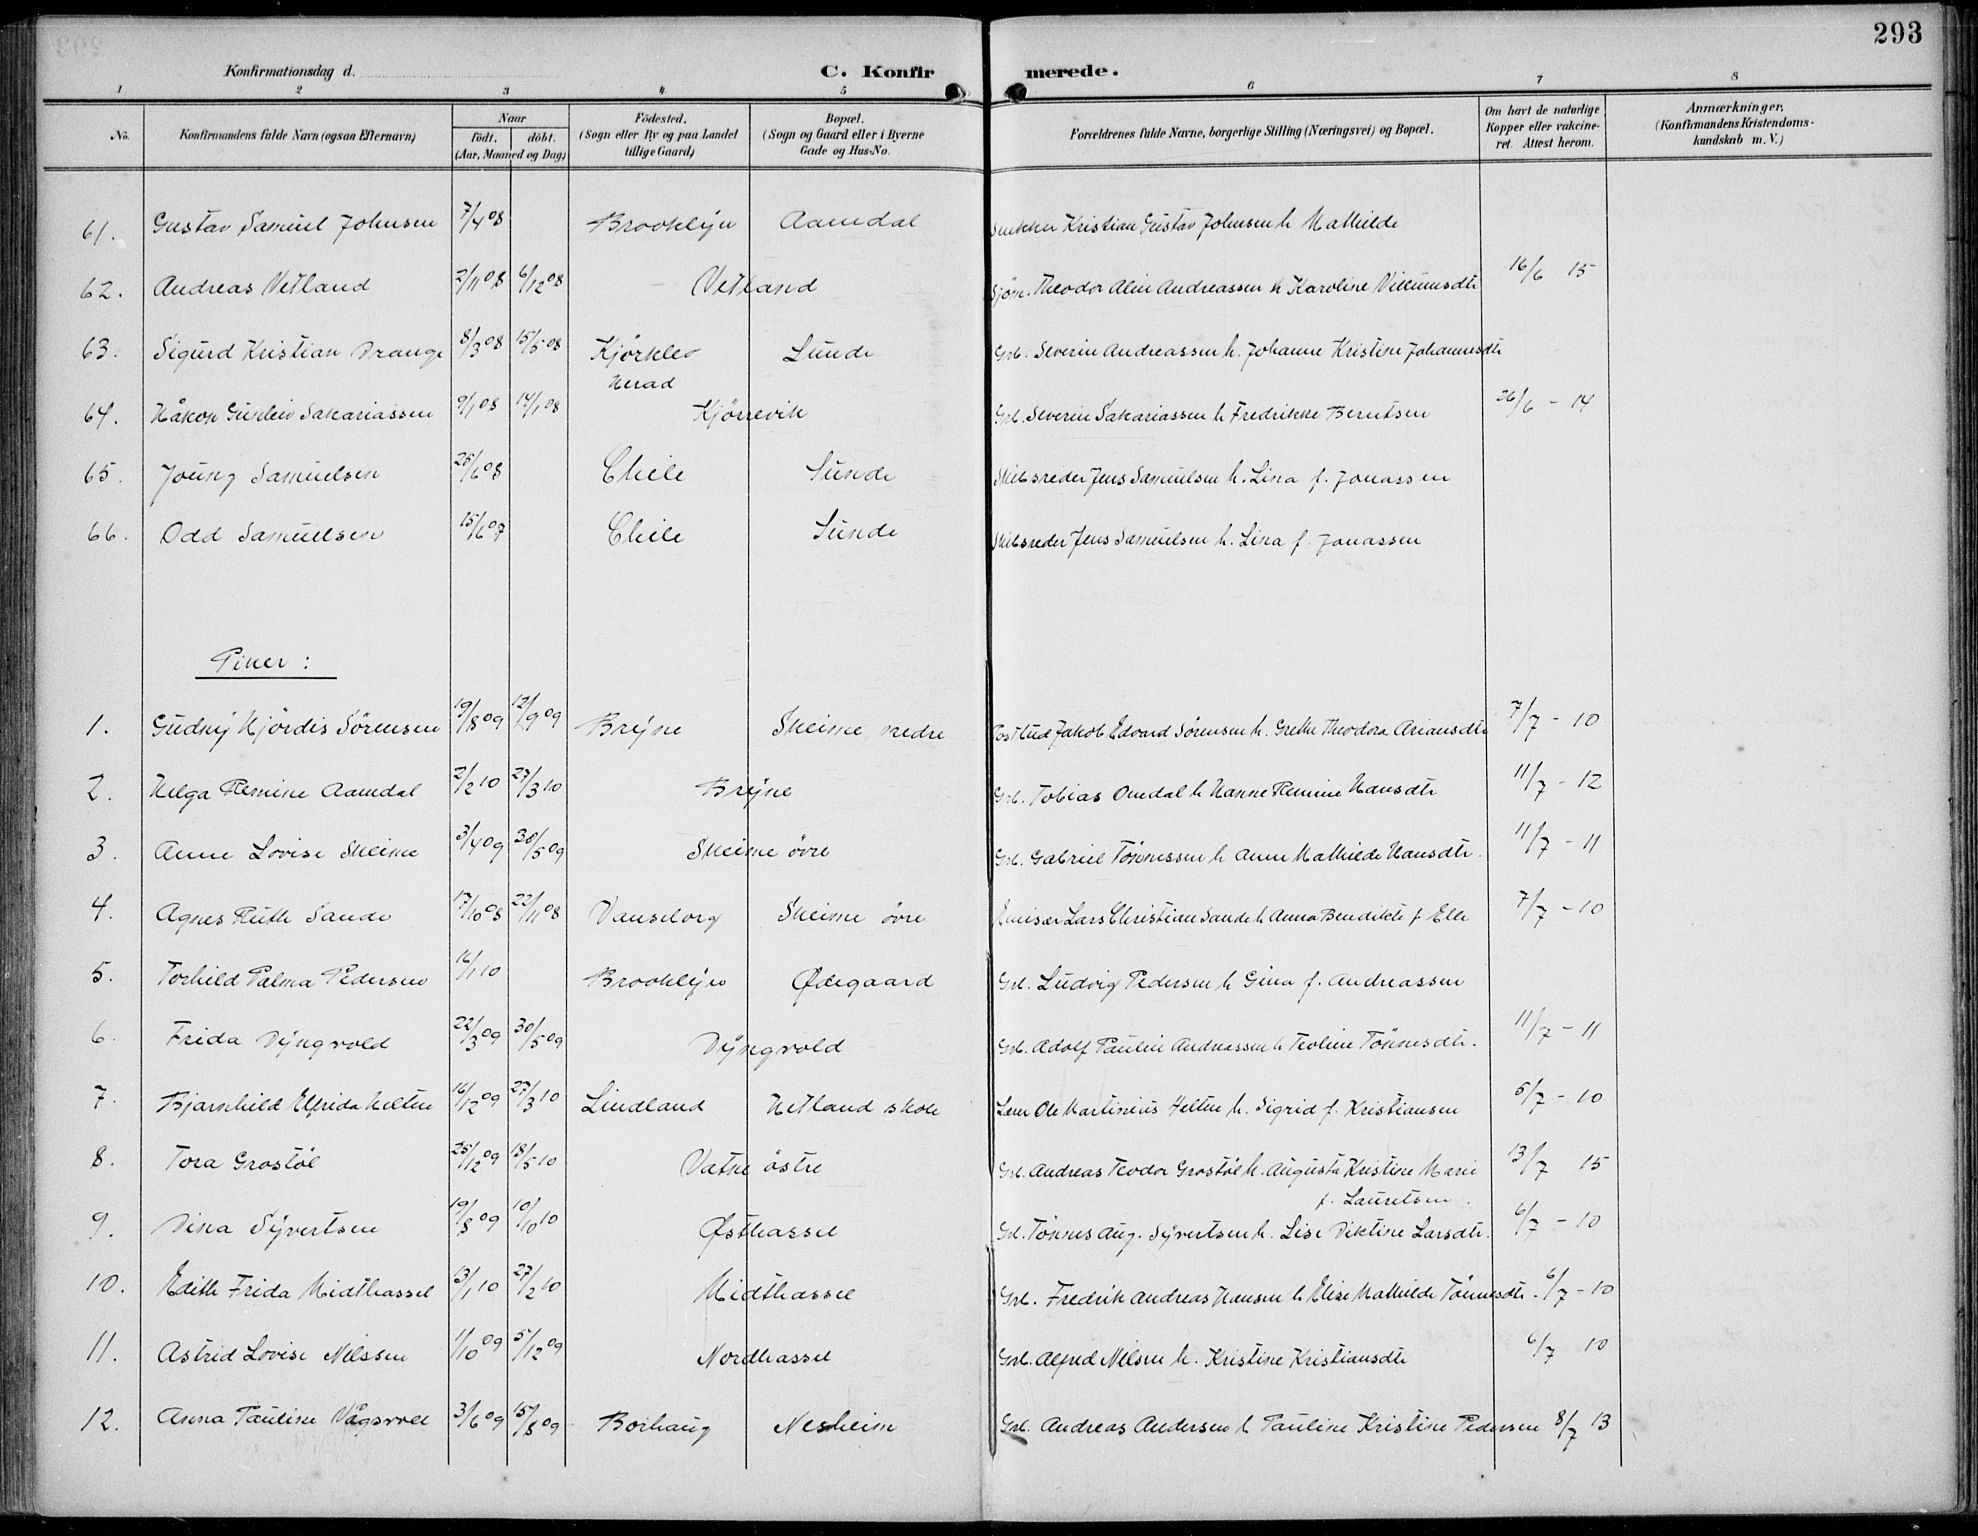 293
Konfirmationsdag d.
C. Konfirmerede.
1 2 3 4 5 6 7 8
No. | Konfirmandens fulde Navn (ogsaa Efternavn) | Naar født. døbt. (Aar, Maaned og Dag) | Fødested. (Sogn eller By og paa Landet tillige Gaard) | Bopæl. (Sogn og Gaard eller i Byerne Gade og Hus-No. | Forældrenes fulde Navne, borgerlige Stilling (Næringsvei) og Bopæl. | Om havt de naturlige Kopper eller vakcineret. Attest herom. | Anmærkninger. (Konfirmandens Kristendomskundskab m. V.)
61. Gustav Samuel Johnsen 7/4 08 Brooklyn Aamdal Snekker Kristian Gustav Johnsen h Mathilde
62. Andreas Vetland 2/11 08 6/12 08 Vetland Sjøm. Theodor Alin Andreassen h Karoline Villumsdtr 16/6 15
63. Sigurd Kristian Drange 8/3 08 15/5 08 Kjørklev Herad Lunde Grb. Severin Andreassen h. Johanne Kristine Johannesdtr
64. Håkon Gunleiv Sakariassen 9/1 08 14/1 08 Kjørrevik Grb. Severin Sakariassen h Fredrikke Berntsen 26/6 - 14
65. Joung Samuelsen 25/6 08 Chile Sunde Skibsreder Jens Samuelsen h. Lina f. Jonassen
66. Odd Samuelsen 15/6 07 Chile Sunde Skibsreder Jens Samuelsen h. Lina f. Jonassen
Piker:
1. Gudny Hjørdis Sørensen 19/8 09 12/9 09 Bryne Skeime nedre Postbud Jakob Edvard Sørensen h. Grethe Theodora Ariansdtr 7/7 - 10
2. Helga Remine Aamdal 2/2 10 27/3 10 Bryne Grb. Tobias Omdal h Hanne Remine Hansdtr 11/7 - 12
3. Anne Lovise Skeime 3/4 09 30/5 09 Skeime øvre Grb. Gabriel Tønnessen h Anne Mathilde Hansdtr. 11/7 - 11
4. Agnes Ruth Sande 17/10 08 22/11 08 Vanseborg Skeime øvre Emisær Lars Christian Sande h Anna Bendikte f Elle 7/7 - 10
5. Torhild Palma Pedersen 16/1 10 Brooklyn Ødegaard Grb. Ludvig Pedersen h Gina f. Andreassen
6. Frida Dyngvold 22/3 09 30/5 09 Dyngvold Grb. Adolf Paulin Andreassen h Teoline Tønnesdtr. 11/7 - 11
7. Bjarnhild Elfrida Heltne 16/12 09 27/3 10 Lindland Hetland skole Lærer Ole Martinius Heltne h. Sigrid f. Kristiansen 5/7 - 10
8. Tora Grostøl 25/12 09 18/5 10 Vatne østre Grb. Andreas Teodor Grostøl h. Augusta Kristine Marie 13/7 15
f. Lauretsen.
9. Dina Syvertsen 19/8 09 10/10 10 Østhassel Grb. Tønnes Aug. Syvertsen h. Lise Diktine Larsdtr. 6/7 - 10
10. Edith Frida Midthassel 13/1 10 27/2 10 Midthassel Grb. Fredrik Andreas Hansen h Elise Mathilde Tønnesdtr. 6/7 - 10
11. Astrid Lovise Nilssen 1/10 09 5/12 09 Nordhassel Grb. Alfred Nilsen h. Kristine Kristiansdtr 6/7 10
12. Anna Pauline Vågsvoll 3/6 09 15/8 09 Borhaug Nesheim Grb. Andreas Andersen h Pauline Kristine Pedersen 8/7 13